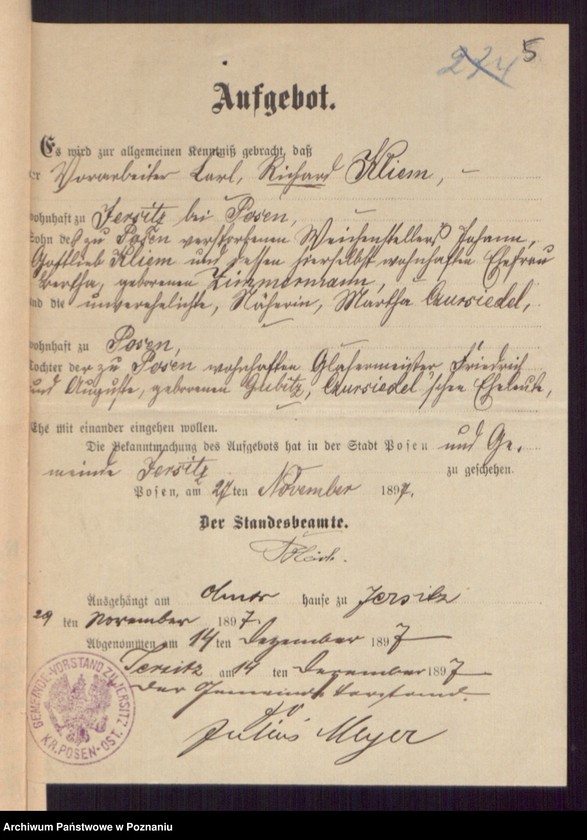 274 5
Aufgebot.
Es wird zur allgemeinen Kenntniß gebracht, daß
er Vorarbeiter Carl, Richard Kliem,
wohnhaft zu Jersitz bei Posen,
Sohn des zu Posen verstorbenen Weichenstellers Johann,
Gottlieb Kliem und dessen hierselbst wohnhaften Ehefrau
Bertha, geborenen Zimmermann,
und die unverehelichte, Näherin, Martha Aursiedel,
wohnhaft zu Posen,
Tochter der zu Posen wohnhaften Glasermeister Friedrich
und Auguste, geborenen Gubitz, Aursiedel'schen Eheleute,
Ehe mit einander eingehen wollen.
Die Bekanntmachung des Aufgebots hat in der Stadt Posen und Ge-
meinde Jersitz zu geschehen.
Posen, am 27ten November 1897.
Der Standesbeamte.
Ausgehängt am hause zu Jersitz
29 ten November 1897.
Abgenommen am 14 ten Dezember 1897
Jersitz am 14 ten Dezember 1897
Der Gemeinde Vorstand.
Julius Meyer
GEMEINDE-VORSTAND ZU JERSITZ
KR. POSEN-OST.
Archiwum Państwowe w Poznaniu